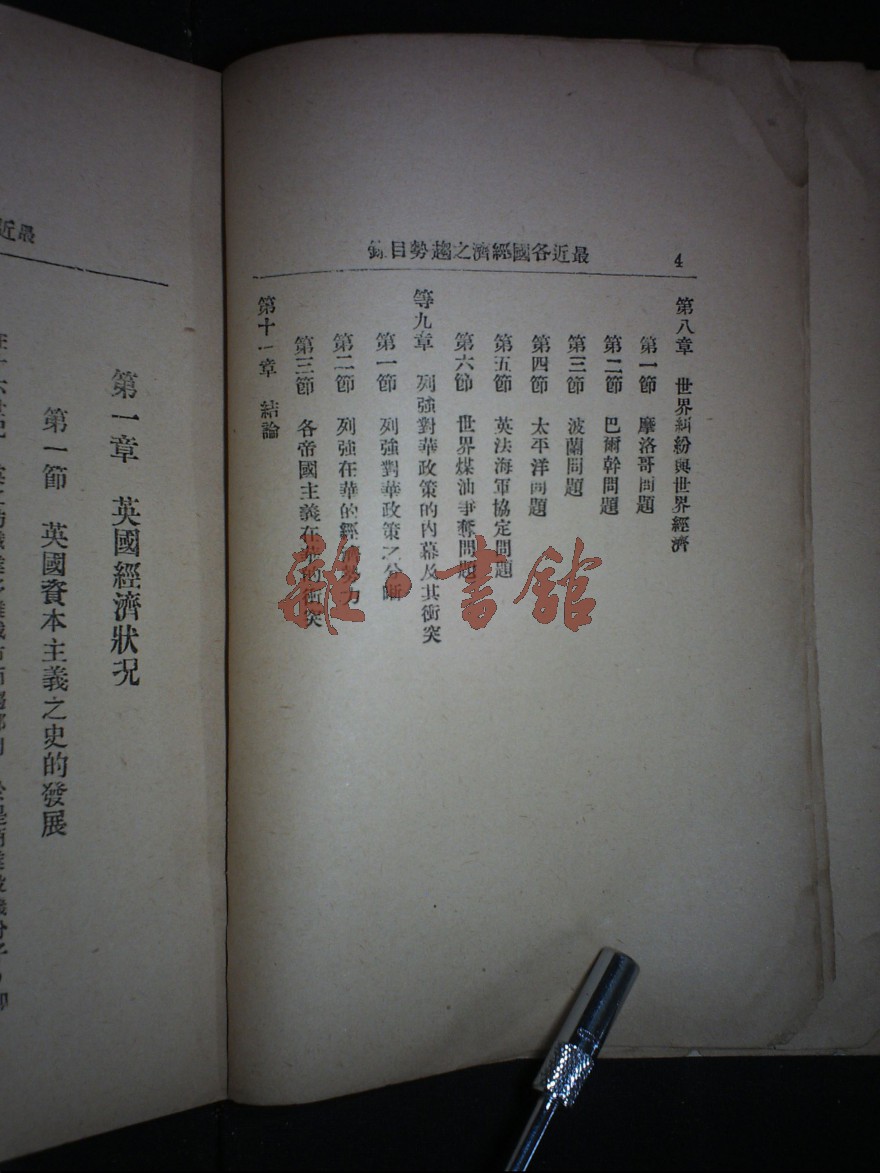 4
最近各國經濟之趨勢目錄
第八章　世界糾紛與世界經濟
第一節　摩洛哥問題
第二節　巴爾幹問題
第三節　波蘭問題
第四節　太平洋問題
第五節　英法海軍協定問題
第六節　世界煤油爭奪問題
等九章　列強對華政策的內幕及其衝突
第一節　列強對華政策之分晰
第二節　列強在華的經濟勢力
第三節　各帝國主義在華的衝突
第十一章　結論
最近
第一章　英國經濟狀況
第一節　英國資本主義之史的發展
雜·書館